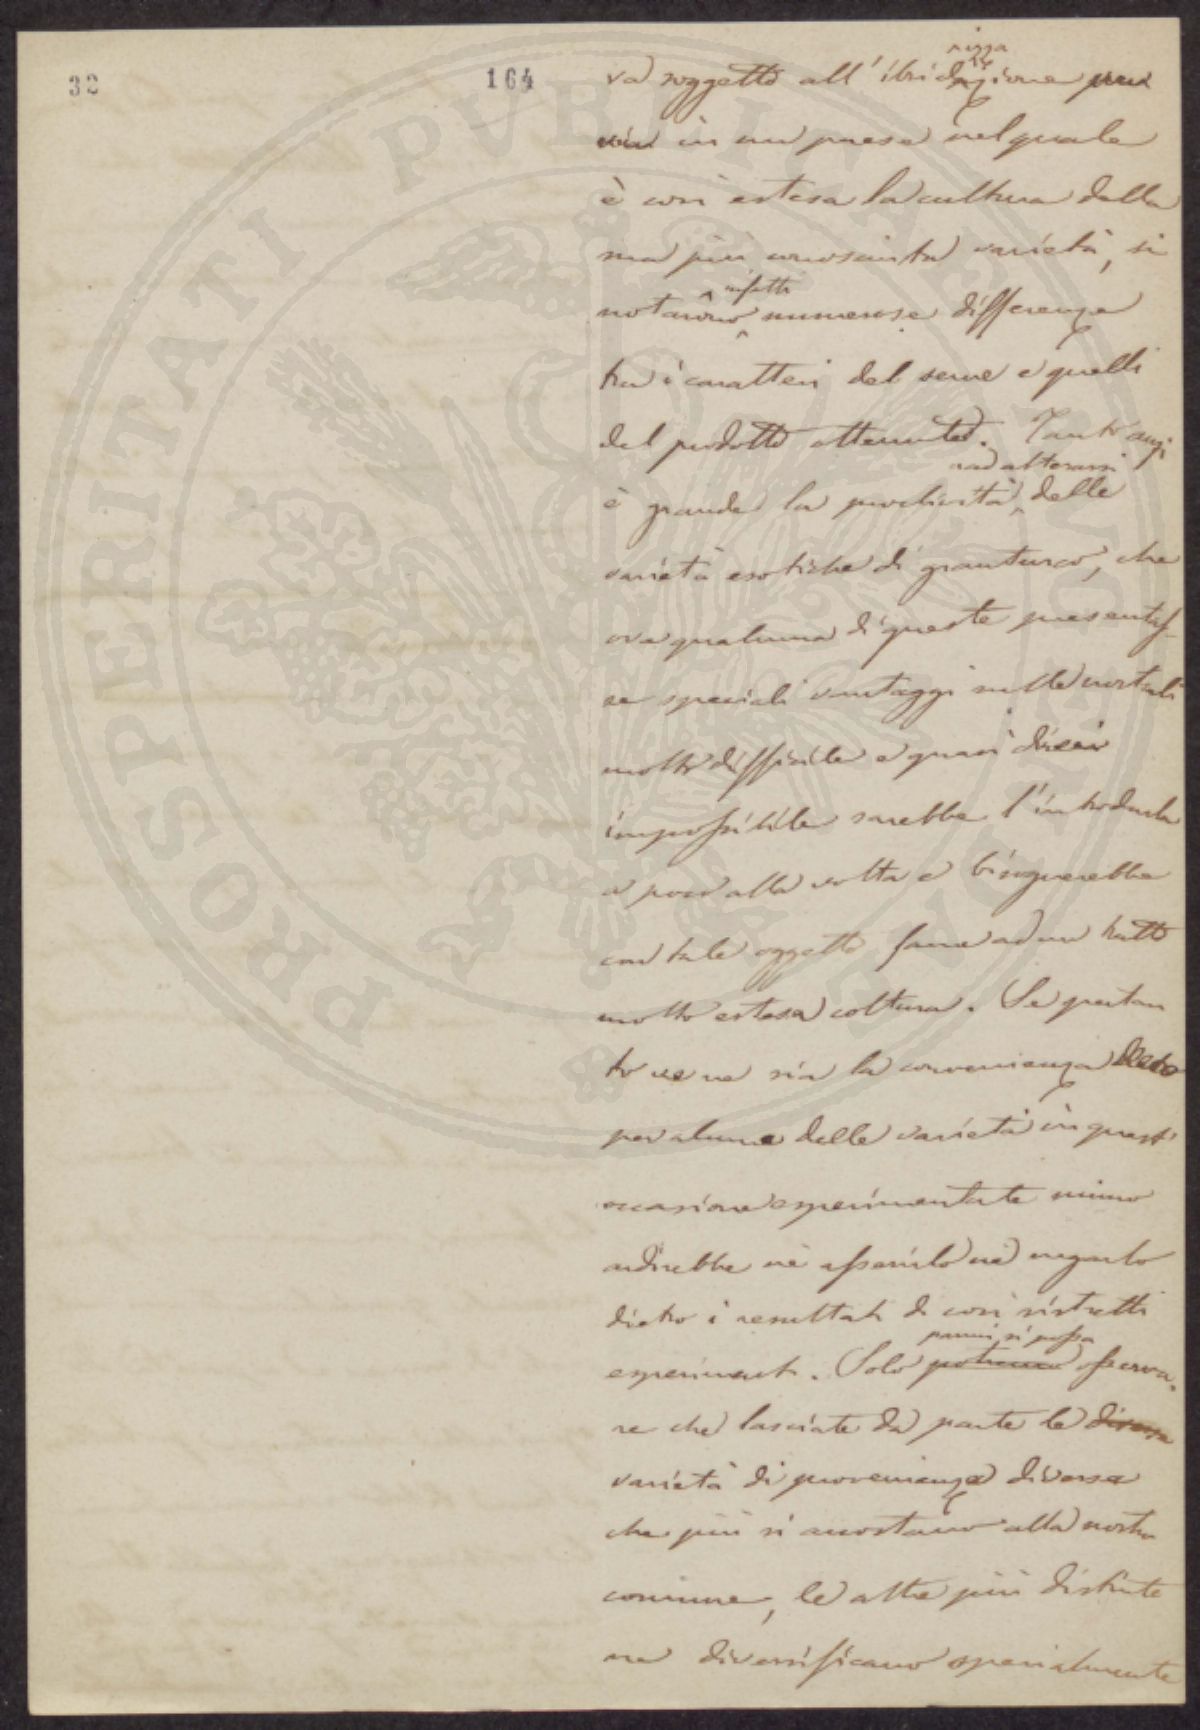 32
164
rizza
va soggetto all' ibridazione
in un paese nel quale
è così estesa la cultura della
sua più conosciuta varietà, si
infatti
notarono numerose differenze
tra i caratteri del seme e quelli
del prodotto ottenuto. Tant'anzi
ad alterarsi
è grande la proclività delle
varietà esotiche di granturco, che
ove qualcuna di queste presentas-
se speciali vantaggi sulle nostrali
molto difficile e quasi direi
impossibile sarebbe l'introdurla
a poco alla volta e bisognerebbe
con tale oggetto farne ad un tratto
molto estesa coltura. Se pertan
to ve ne sia la convenienza
per alcune delle varietà in quest'
occasione esperimentate niuno
ardirebbe nè asserirlo nè negarlo
dietro i resultati di così ristretti
parmi si possa
esperimenti. Solo potremo osserva-
re che lasciate da parte le diverse
varietà di provenienza diversa
che più si accostano alla nostra
comune, le altre più distinte
ne diversificano specialmente
PROSPERITATI PVBLICAE